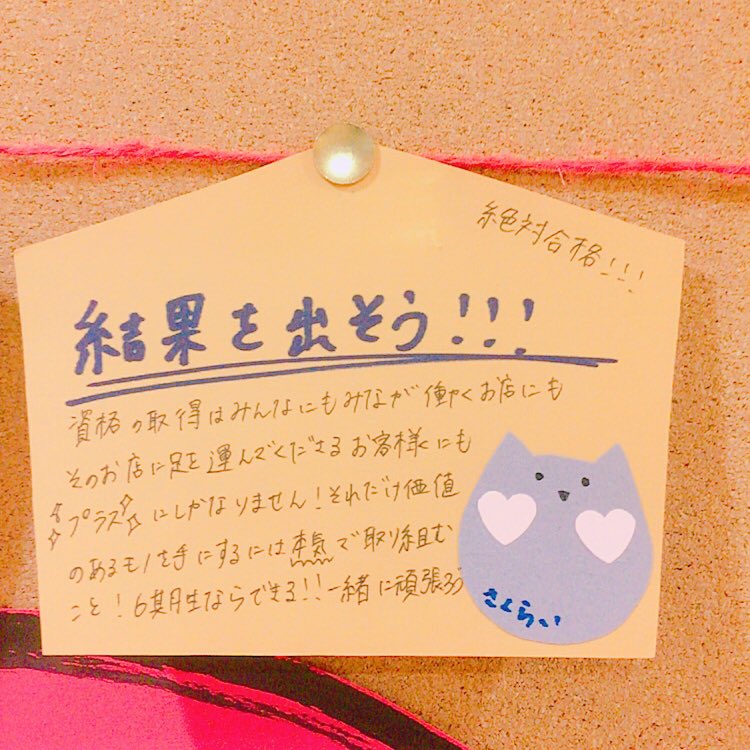 絶対合格!!!
結果を出そう!!!
資格の取得はみんなにもみなが働くお店にも
そのお店に足を運んでくださるお客様にも
プラスにしかなりません!それだけ価値
のあるモノを手にするには本気で取り組む
こと!6期生ならできる!!一緒に頑張ろう
さくらい